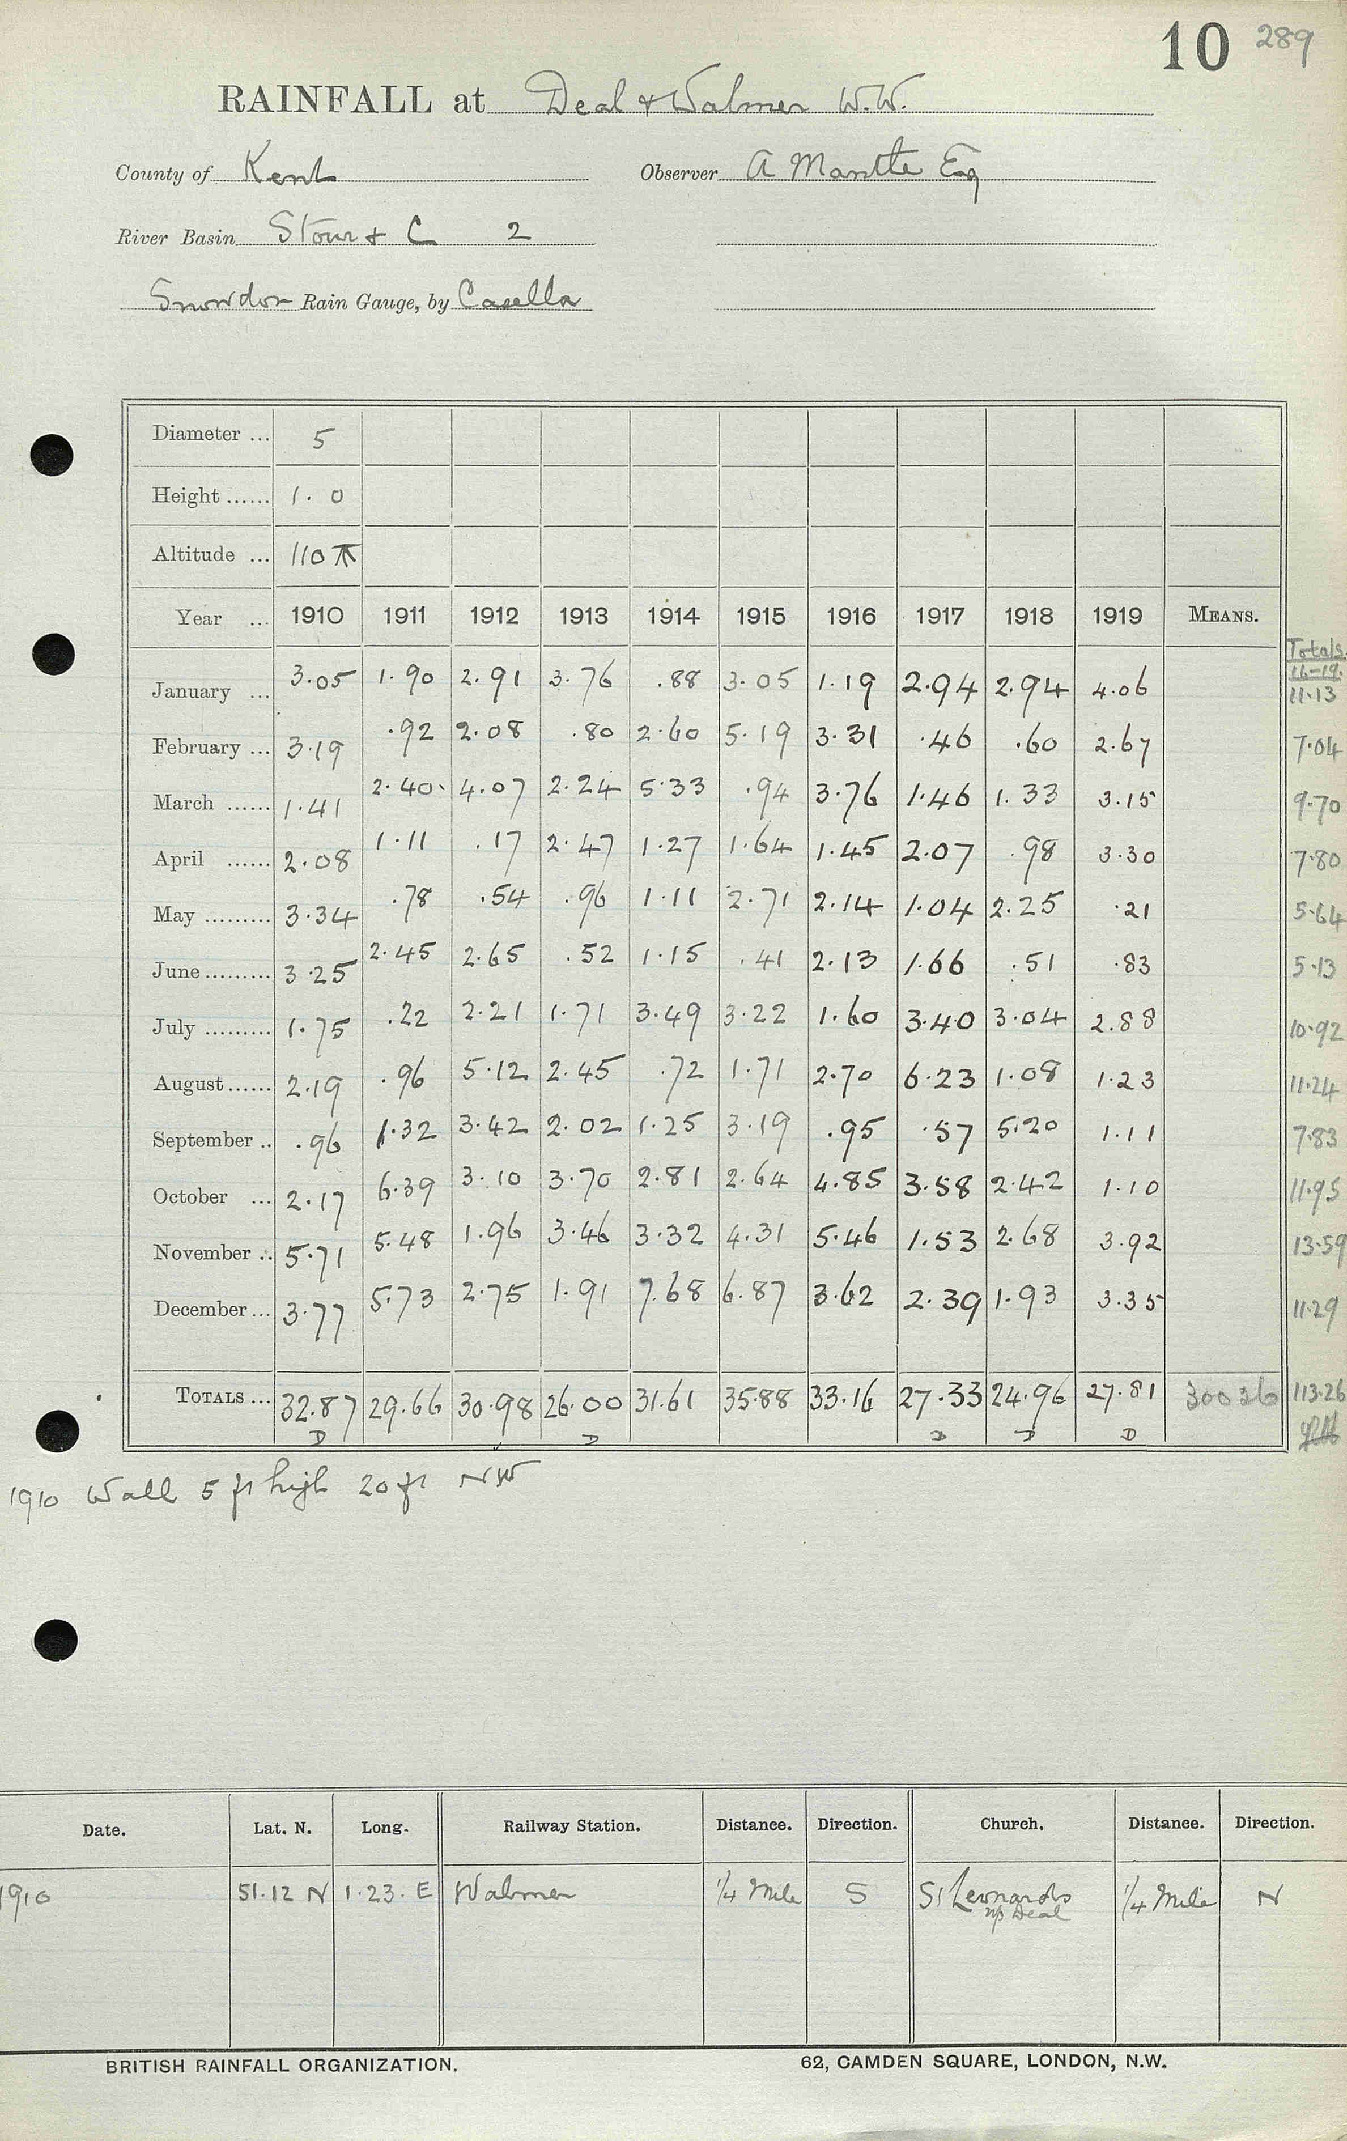 10 289
RAINFALL at Deal & Walmer W.W.
County of Kent Observer A Mantle Esq
River Basin Stour & C 2
Snowdon Rain Gauge, by Casella
Diameter ... 5
Height ...... 1. 0
Altitude ... 110
Year ... 1910 1911 1912 1913 1914 1915 1916 1917 1918 1919 MEANS.
Totals
16-19.
January ... 3.05 1.90 2.91 3.76 .88 3.05 1.19 2.94 2.94 4.06 11.13
February ... 3.19 .92 2.08 .80 2.60 5.19 3.31 .46 .60 2.67 7.04
March ...... 1.41 2.40 4.07 2.24 5.33 .94 3.76 1.46 1.33 3.15 9.70
April ...... 2.08 1.11 .17 2.47 1.27 1.64 1.45 2.07 .98 3.30 7.80
May ......... 3.34 .78 .54 .96 1.11 2.71 2.14 1.04 2.25 .21 5.64
June ......... 3.25 2.45 2.65 .52 1.15 .41 2.13 1.66 .51 .83 5.13
July ......... 1.75 .22 2.21 1.71 3.49 3.22 1.60 3.40 3.04 2.88 10.92
August ...... 2.19 .96 5.12 2.45 .72 1.71 2.70 6.23 1.08 1.23 11.24
September .. .96 1.32 3.42 2.02 1.25 3.19 .95 .57 5.20 1.11 7.83
October ... 2.17 6.39 3.10 3.70 2.81 2.64 4.85 3.58 2.42 1.10 11.95
November .. 5.71 5.48 1.96 3.46 3.32 4.31 5.46 1.53 2.68 3.92 13.59
December ... 3.77 5.73 2.75 1.91 7.68 6.87 3.62 2.39 1.93 3.35 11.29
TOTALS ... 32.87 29.66 30.98 26.00 31.61 35.88 33.16 27.33 24.96 27.81 300 26 113.26
D D D D D
1910 Wall 5 ft high 20 ft NW
Date. Lat. N. Long. Railway Station. Distance. Direction. Church. Distance. Direction.
1910 51.12 N 1.23. E Walmer 1/4 Mile S St Leonards 1/4 Mile N
up Deal
BRITISH RAINFALL ORGANIZATION. 62, CAMDEN SQUARE, LONDON, N.W.